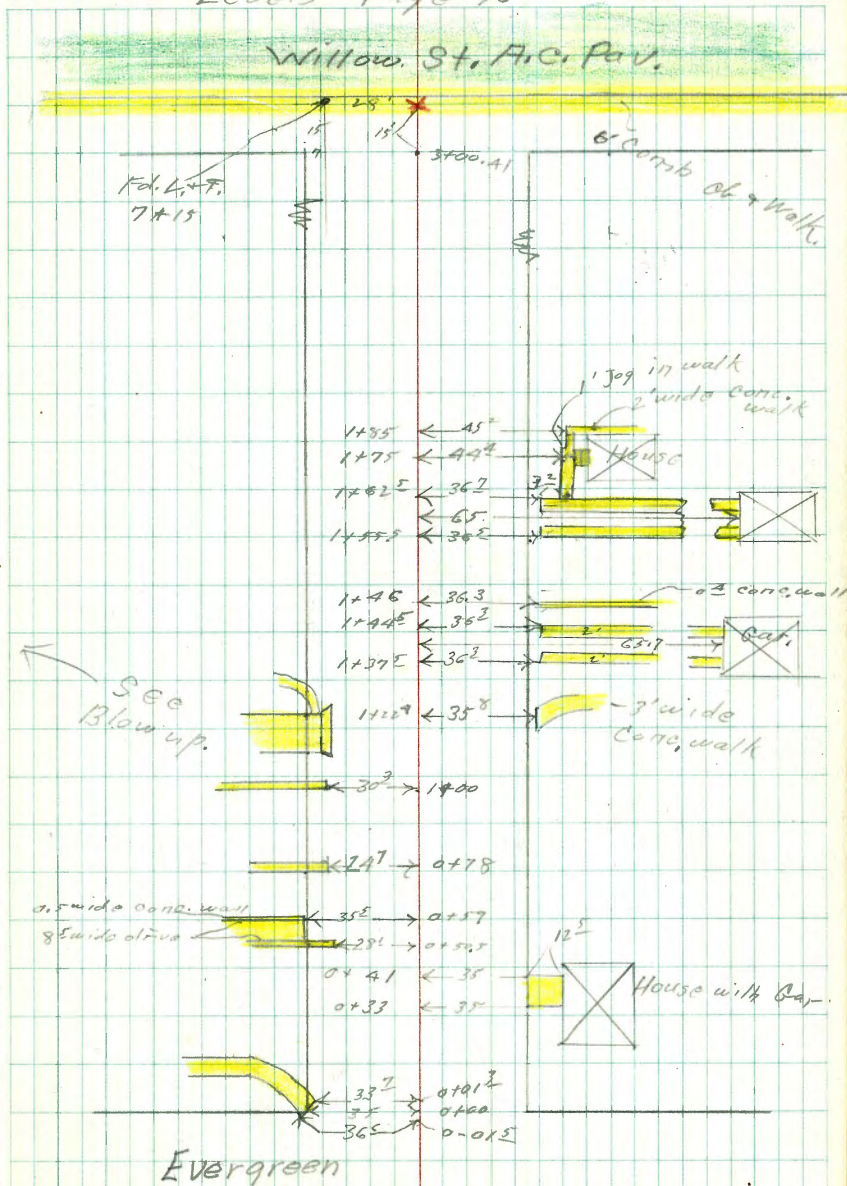 Willow. St. A.C. Pav.
28'
15
15'
7
3+00.41
6' Comb
Cb & Walk.
Fd. L.+T.
7+15
1' Jog in walk
2' wide conc.
walk
1+85 45²
1+75 44⁴ House
3²
1+62⁵ 36⁷
65.
1+55.5 36⁵
1+46 36.3 0⁴ conc. wall
1+44⁵ 36³ 2'
65.7 Gar.
1+37⁵ 36³ 2'
See
Blow up.
1+22⁹ 35⁸ - 3' wide
Conc. walk
30³ 1+00
0+78
0.5 wide conc. wall 35⁵ 0+59
8⁵ wide drive 28' 0+50.5
12⁵
0+41 35
House with Gar.
0+33 35
33⁷ 0+01³
35 0+00
36⁵ 0-01⁵
Evergreen